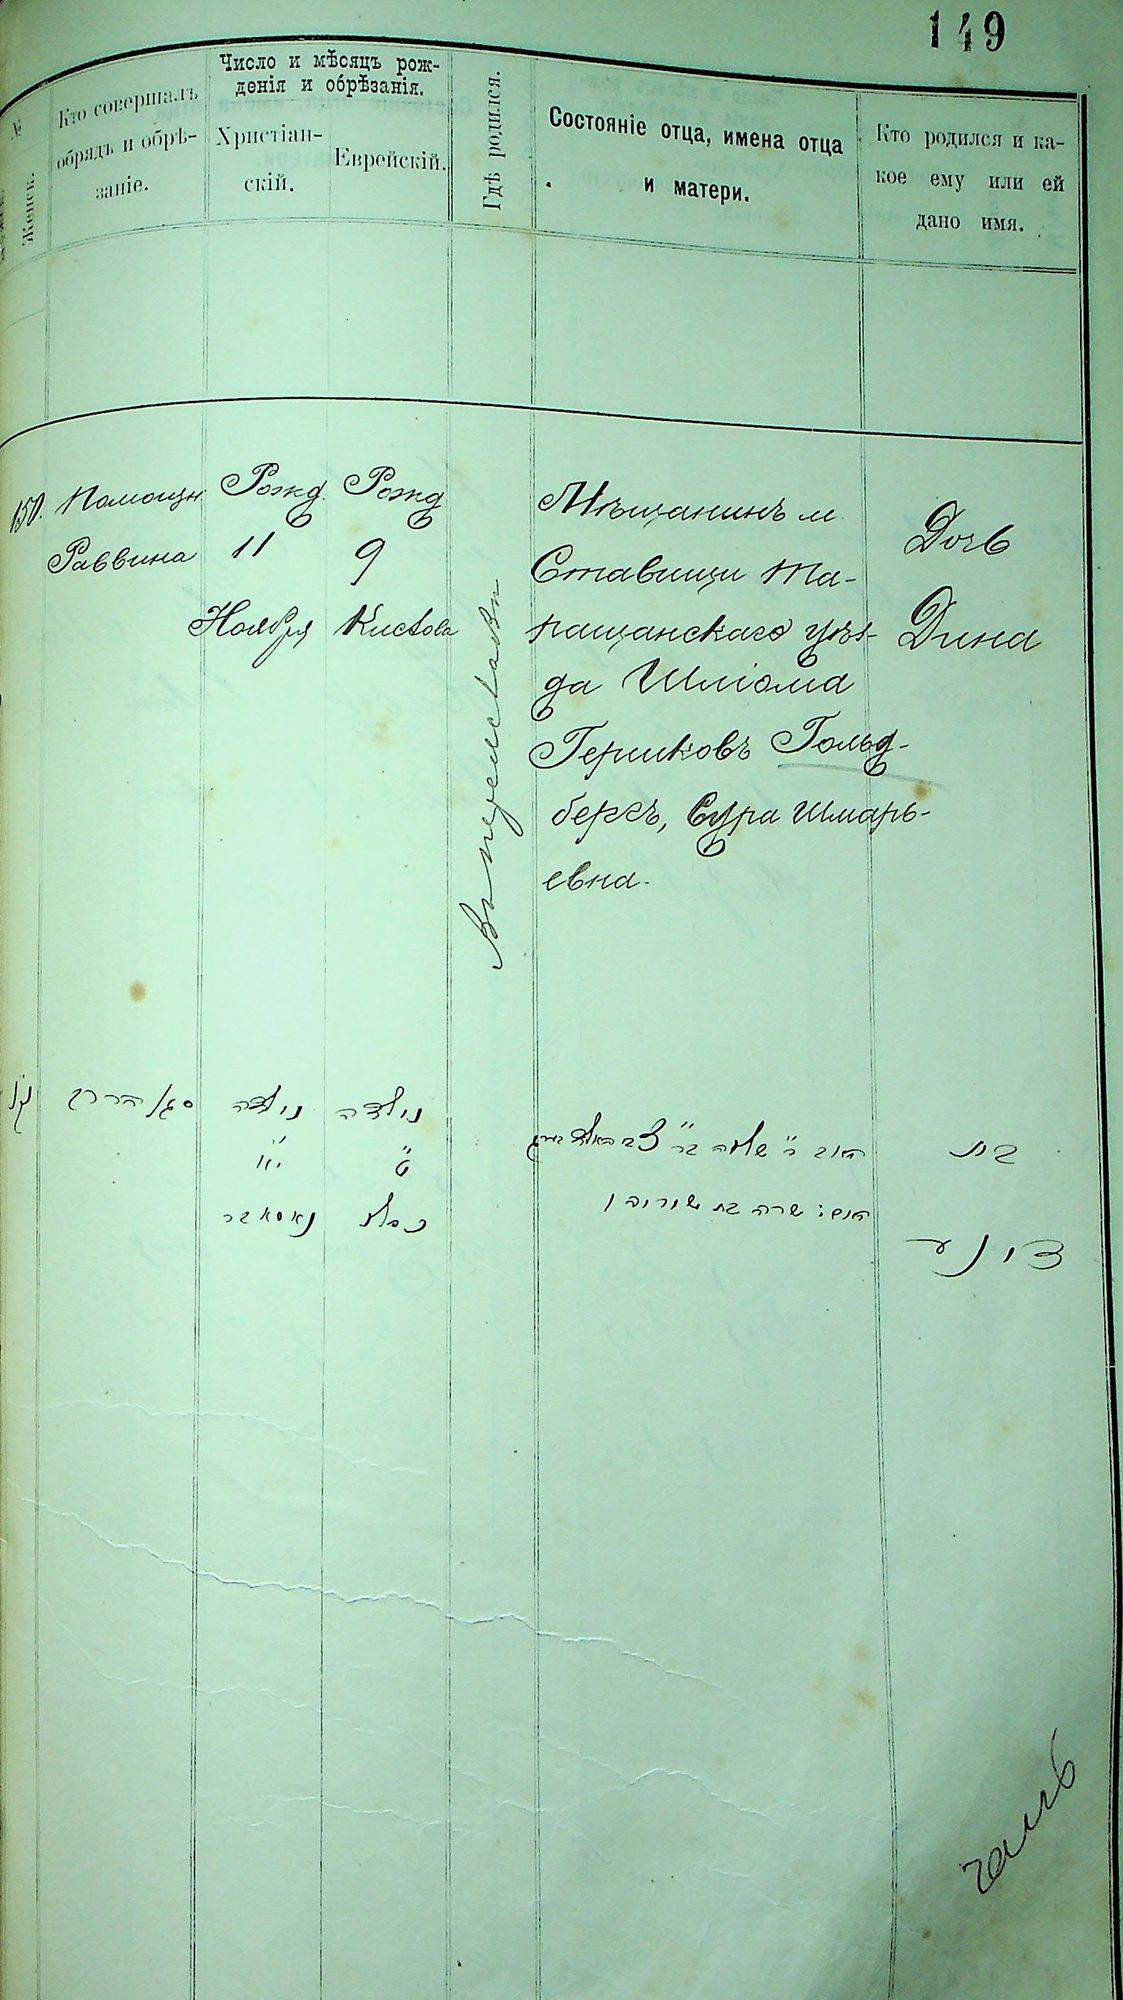 149
№
Женск.
Кто совершалъ
обрядъ и обрѣ-
заніе.
Число и мѣсяцъ рож-
денія и обрѣзанія.
Христіан-
скій.
Еврейскій.
Гдѣ родился.
Состояніе отца, имена отца
и матери.
Кто родился и ка-
кое ему или ей
дано имя.
150.
Помощн
Раввина
Рожд.
11
Ноября
Рожд
9
Кислова
Мѣщанинъ м
Ставищи Та-
ращанскаго уѣз-
да Шліома
Гершковъ Гольд-
бергъ, Сура Шмарь-
евна.
Дочь
Дина
קנ
סגן הרב
נולדה
י"א
נאסאבר
נולדה
ט"
כסלו
האב ר" שלמה בר"
האם: שרה בת
בת
דינע